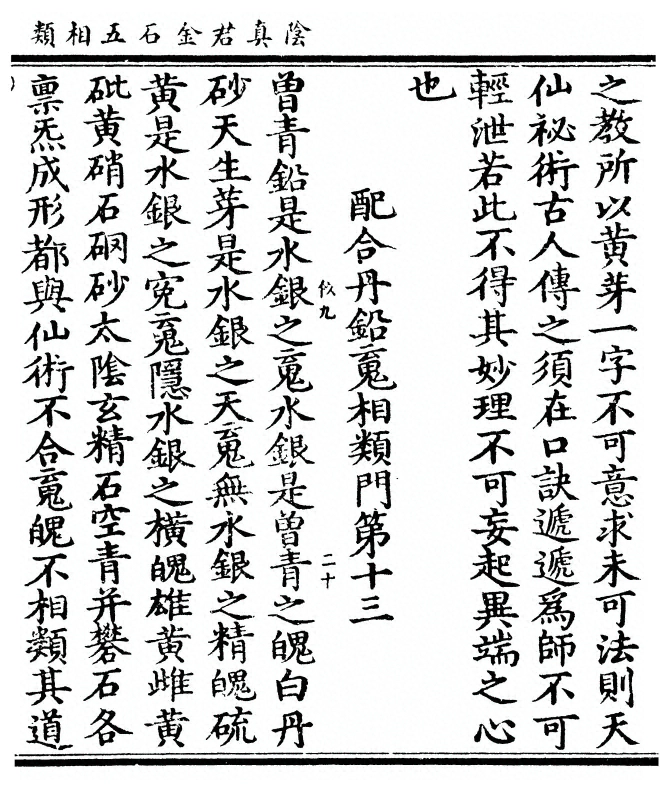 陰真君金石五相類
之教所以黄芽一字不可意求未可法則天
仙祕術古人傳之須在口訣遞遞爲師不可
輕泄若此不得其妙理不可妄起異端之心
也
配合丹鉛䰟相類門第十三
曽青鉛是水銀之䰟水銀是曽青之䰟白丹
似九
二十
砂天生芽是水銀之天䰟無水銀之精䰟硫
黄是水銀之寃䰟隱水銀之橫䰟雄黄雌黄
砒黄硝石硇砂太陰玄精石空青并礬石各
禀炁成形都與仙術不合䰟魄不相類其道